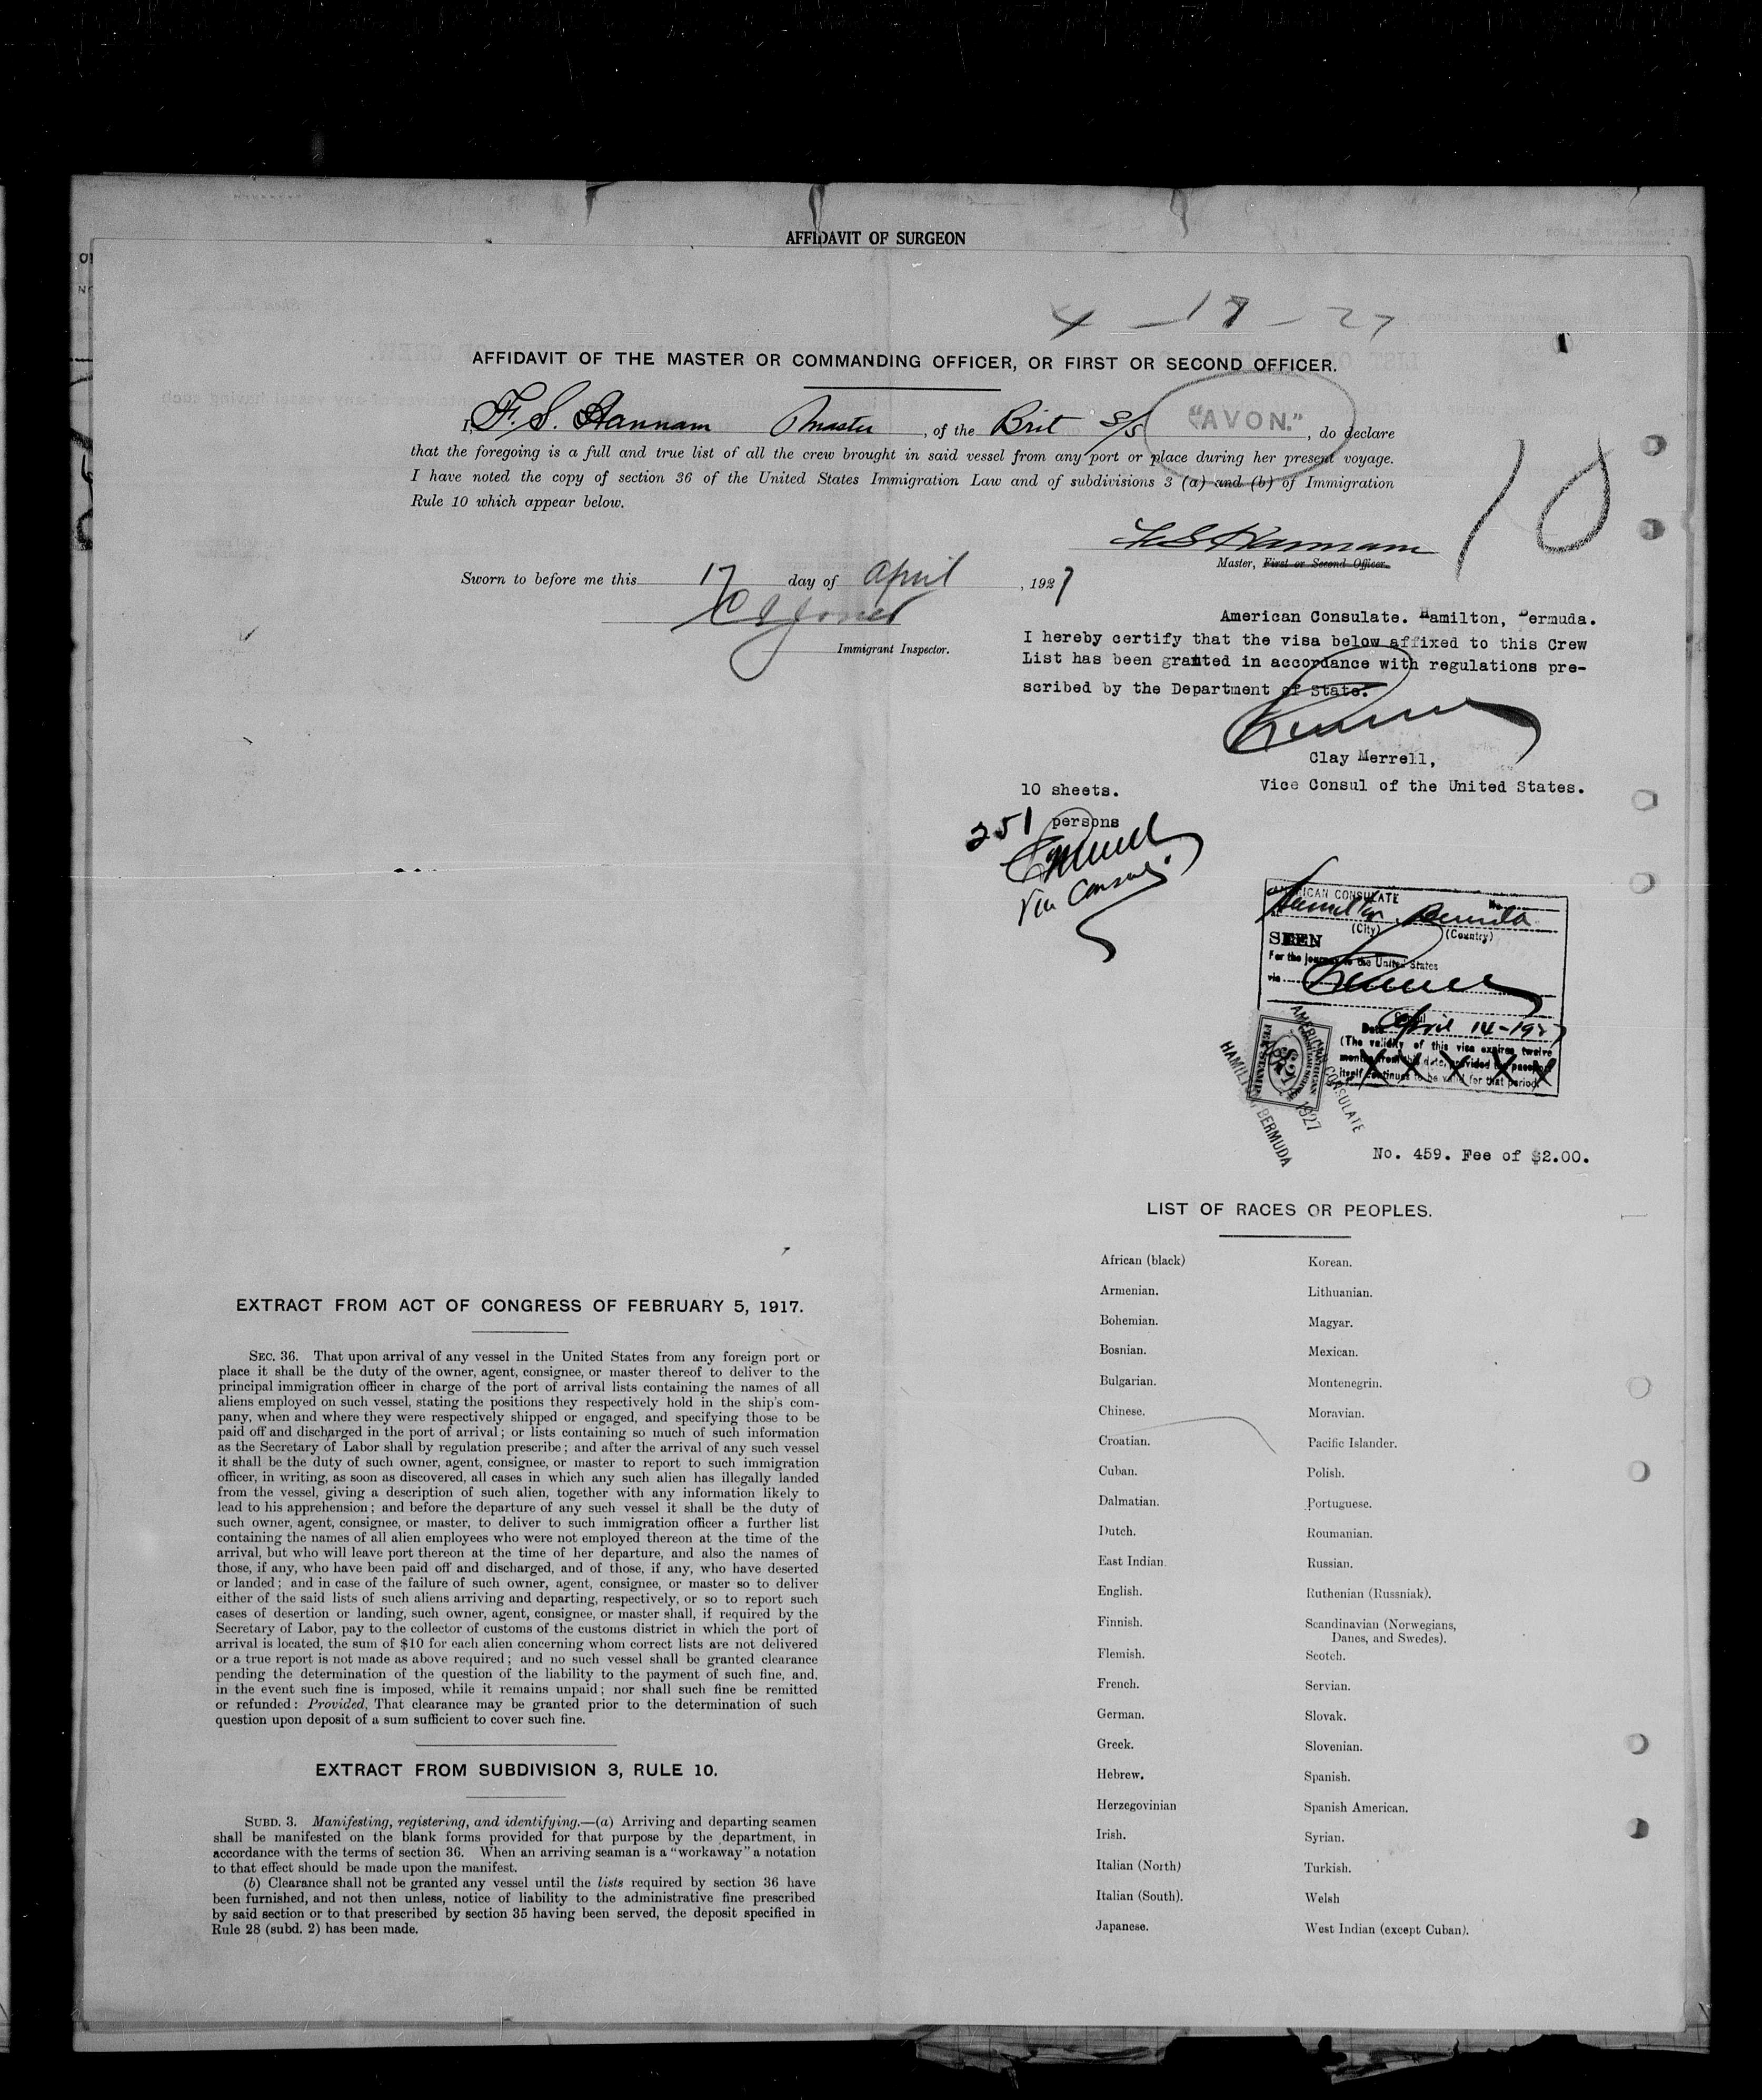 AFFIDAVIT OF SURGEON
4-17-27
AFFIDAVIT OF THE MASTER OR COMMANDING OFFICER, OR FIRST OR SECOND OFFICER.
I, F. S. Hannam Master, of the Brit S/S "AVON.", do declare
that the foregoing is a full and true list of all the crew brought in said vessel from any port or place during her present voyage.
I have noted the copy of section 36 of the United States Immigration Law and of subdivisions 3 (a) and (b) of Immigration
Rule 10 which appear below.
10
F S Hannam
Master, First or Second Officer.
Sworn to before me this 17 day of April, 1927
Jones
Immigrant Inspector.
American Consulate. Hamilton, Bermuda.
I hereby certify that the visa below affixed to this Crew
List has been granted in accordance with regulations pre-
scribed by the Department of State.
Clay Merrell,
Vice Consul of the United States.
10 sheets.
251 persons
Vice Consul
AMERICAN CONSULATE No.
Hamilton, Bermuda
(City) (Country)
SEEN
For the journey to the United States
via
Consul
Date April 14-1927
(The validity of this visa expires twelve
months from this date, provided the passport
itself continues to be valid for that period)
AMERICAN CONSULATE
HAMILTON, BERMUDA
1927
FEE STAMP
No. 459. Fee of $2.00.
LIST OF RACES OR PEOPLES.
African (black)
Armenian.
Bohemian.
Bosnian.
Bulgarian.
Chinese.
Croatian.
Cuban.
Dalmatian.
Dutch.
East Indian.
English.
Finnish.
Flemish.
French.
German.
Greek.
Hebrew.
Herzegovinian
Irish.
Italian (North)
Italian (South).
Japanese.
Korean.
Lithuanian.
Magyar.
Mexican.
Montenegrin.
Moravian.
Pacific Islander.
Polish.
Portuguese.
Roumanian.
Russian.
Ruthenian (Russniak).
Scandinavian (Norwegians,
Danes, and Swedes).
Scotch.
Servian.
Slovak.
Slovenian.
Spanish.
Spanish American.
Syrian.
Turkish.
Welsh
West Indian (except Cuban).
EXTRACT FROM ACT OF CONGRESS OF FEBRUARY 5, 1917.
SEC. 36. That upon arrival of any vessel in the United States from any foreign port or
place it shall be the duty of the owner, agent, consignee, or master thereof to deliver to the
principal immigration officer in charge of the port of arrival lists containing the names of all
aliens employed on such vessel, stating the positions they respectively hold in the ship's com-
pany, when and where they were respectively shipped or engaged, and specifying those to be
paid off and discharged in the port of arrival; or lists containing so much of such information
as the Secretary of Labor shall by regulation prescribe; and after the arrival of any such vessel
it shall be the duty of such owner, agent, consignee, or master to report to such immigration
officer, in writing, as soon as discovered, all cases in which any such alien has illegally landed
from the vessel, giving a description of such alien, together with any information likely to
lead to his apprehension; and before the departure of any such vessel it shall be the duty of
such owner, agent, consignee, or master, to deliver to such immigration officer a further list
containing the names of all alien employees who were not employed thereon at the time of the
arrival, but who will leave port thereon at the time of her departure, and also the names of
those, if any, who have been paid off and discharged, and of those, if any, who have deserted
or landed; and in case of the failure of such owner, agent, consignee, or master so to deliver
either of the said lists of such aliens arriving and departing, respectively, or so to report such
cases of desertion or landing, such owner, agent, consignee, or master shall, if required by the
Secretary of Labor, pay to the collector of customs of the customs district in which the port of
arrival is located, the sum of $10 for each alien concerning whom correct lists are not delivered
or a true report is not made as above required; and no such vessel shall be granted clearance
pending the determination of the question of the liability to the payment of such fine, and,
in the event such fine is imposed, while it remains unpaid; nor shall such fine be remitted
or refunded: Provided, That clearance may be granted prior to the determination of such
question upon deposit of a sum sufficient to cover such fine.
EXTRACT FROM SUBDIVISION 3, RULE 10.
SUBD. 3. Manifesting, registering, and identifying.—(a) Arriving and departing seamen
shall be manifested on the blank forms provided for that purpose by the department, in
accordance with the terms of section 36. When an arriving seaman is a "workaway" a notation
to that effect should be made upon the manifest.
(b) Clearance shall not be granted any vessel until the lists required by section 36 have
been furnished, and not then unless, notice of liability to the administrative fine prescribed
by said section or to that prescribed by section 35 having been served, the deposit specified in
Rule 28 (subd. 2) has been made.